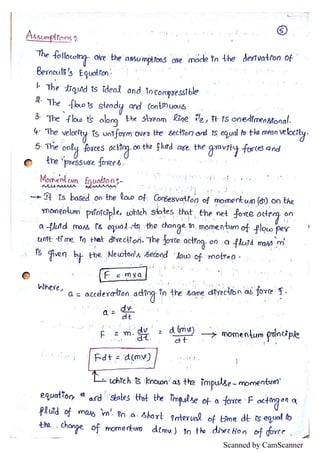 5
Assumptions :
The following are the assumptions are made in the derivation of
Bernoulli's Equation:
1. The liquid is ideal and incompressible
2. The flow is steady and continuous
3. The flow is along the stream line ie, it is onedimensional.
4. The velocity is uniform over the section and is equal to the mean velocity.
5. The only forces acting on the fluid are the gravity forces and
the pressure forces.
Momentum Equations:-
→ It is based on the law of Conservation of momentum (or) on the
momentum principle, which states that the net force acting on
a fluid mass is equal to the change in momentum of flow per
unit time in that direction. The force acting on a fluid mass 'm'
is given by the Newton's second law of motion.
F = m×a
Where, a = acceleration acting in the same direction as force F.
a = dv/dt
F = m.dv/dt = d(mv)/dt → momentum principle
F.dt = d(mv)
which is known as the impulse-momentum
equation and states that the impulse of a force F acting on a
fluid of mass 'm' in a short interval of time dt is equal to
the change of momentum d(mv) in the direction of force.
Scanned by CamScanner